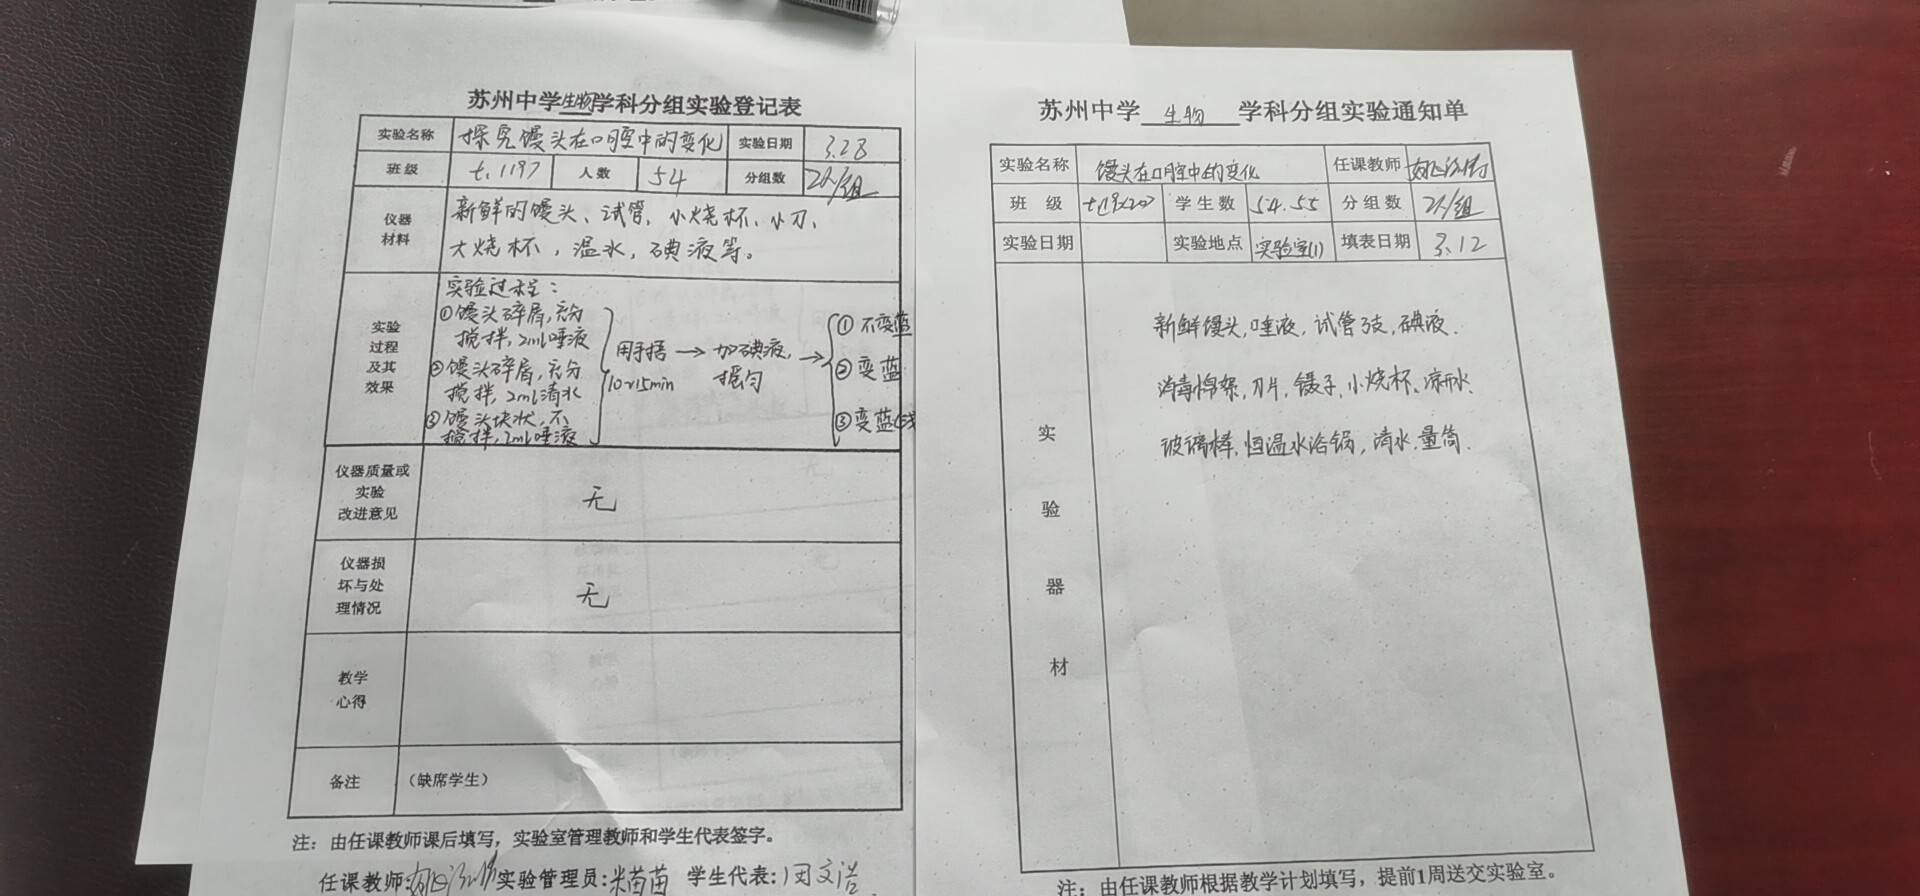 苏州中学生物学科分组实验登记表
实验名称 探究馒头在口腔中的变化 实验日期 3.28
班级 七.1197 人数 54 分组数 2人/组
仪器材料 新鲜的馒头、试管、小烧杯、小刀、
大烧杯，温水，碘液等。
实验过程及其效果
实验过程：
①馒头碎屑,充分
搅拌,2ml唾液
②馒头碎屑,充分
搅拌,2ml清水
③馒头块状,不
搅拌,2ml唾液
用手捂
10~15min
→ 加碘液,
振匀
→
①不变蓝
②变蓝
③变蓝(浅
仪器质量或实验改进意见 无
仪器损坏与处理情况 无
教学心得
备注 （缺席学生）
注：由任课教师课后填写，实验室管理教师和学生代表签字。
任课教师: 实验管理员:米苗苗 学生代表:闫文浩
苏州中学 生物 学科分组实验通知单
实验名称 馒头在口腔中的变化 任课教师
班级 学生数 54.55 分组数 2人/组
实验日期 实验地点 实验室(1) 填表日期 3.12
实验器材
新鲜馒头,唾液,试管3支,碘液.
消毒棉絮,刀片,镊子,小烧杯、凉开水、
玻璃棒,恒温水浴锅,清水,量筒.
注：由任课教师根据教学计划填写，提前1周送交实验室。